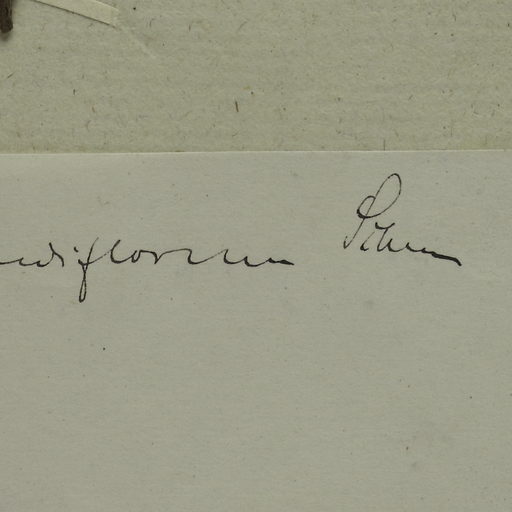 ndiflorum Schum